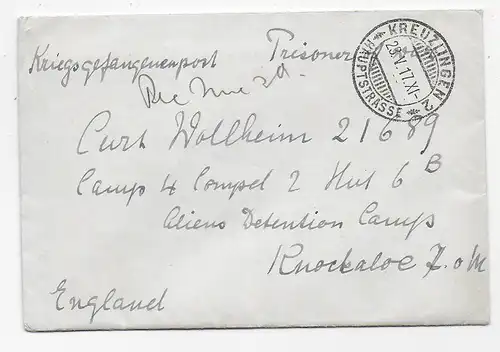 Kriegsgefangenenpost Prisoner
KREUZLINGEN 2
29.V.17.XI-
HAUPTSTRASSE
Rec June 2d
Curt Wollheim 21689
Camp 4 Compd 2 Hut 6 B
Aliens Detention Camp
Knockaloe I.o M
England